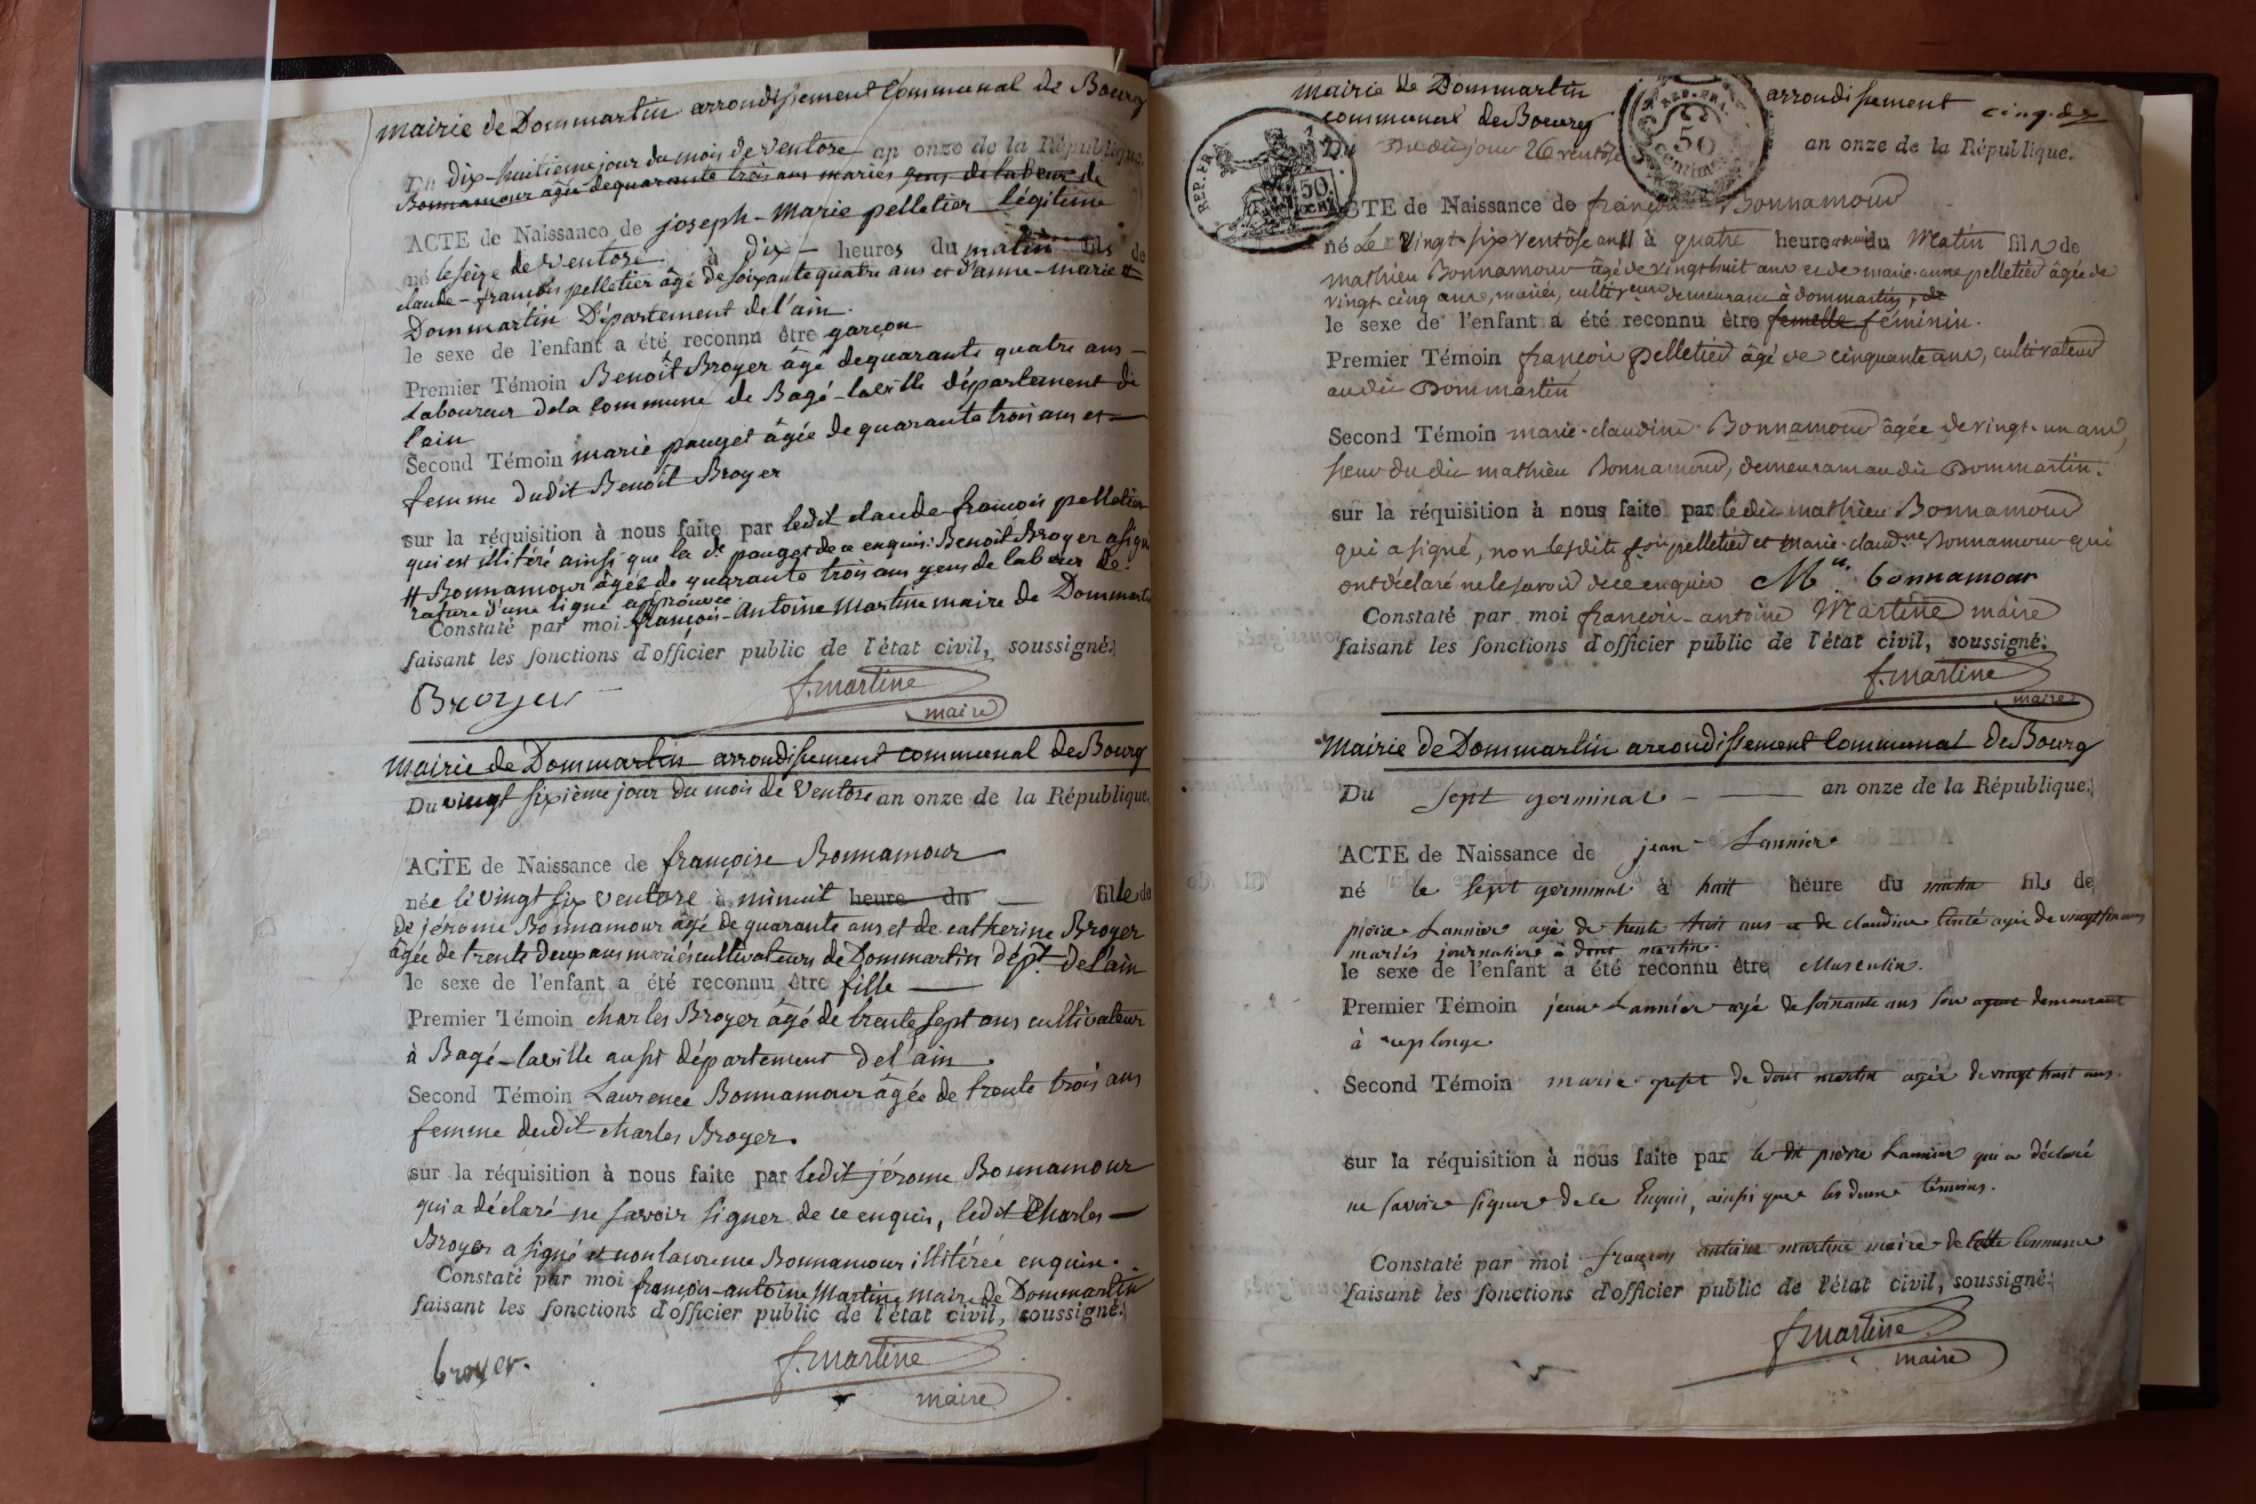 mairie de Dommartin arrondissement Communal de Bourg
Du dix-huitième jour du mois de ventose an onze de la République.
Bonnamour âgée de quarante trois ans mariés gens de labeur de
ACTE de Naissance de joseph-Marie pelletier légitime
né le seize de ventose à dix heures du matin fils de
claude-françois pelletier âgé de soixante quatre ans et d'anne-marie #
Dommartin Département de l'ain.
le sexe de l'enfant a été reconnu être garçon
Premier Témoin Benoît Broyer âgé de quarante quatre ans
Laboureur de la Commune de Bagé-laville département de
l'ain
Second Témoin marie pauget âgée de quarante trois ans et
femme dudit Benoît Broyer
sur la réquisition à nous faite par ledit claude françois pelletier
qui est illitéré ainsi que la de. pauget de ce enquis: Benoît Broyer a signé
# Bonnamour âgée de quarante trois ans gens de labeur de.
rature d'une ligne approuvée.
Constaté par moi françois-antoine Martine maire de Dommartin
faisant les fonctions d'officier public de l'état civil, soussigné.
Broyer
f. martine
maire
Mairie de Dommartin arrondissement communal de Bourg
Du vingt sixième jour du mois de Ventose an onze de la République.
ACTE de Naissance de françoise Bonnamour
née le vingt six ventose à minuit heure du fille de
de jérome Bonnamour âgé de quarante ans et de catherine Broyer
âgée de trente deux ans mariés cultivateurs de Dommartin dépt. de l'ain
le sexe de l'enfant a été reconnu être fille
Premier Témoin charles Broyer âgé de trente sept ans cultivateur
à Bagé-laville aussi département de l'ain.
Second Témoin Laurence Bonnamour âgée de trente trois ans
femme dudit charles Broyer.
sur la réquisition à nous faite par ledit jérome Bonnamour
qui a déclaré ne savoir signer de ce enquis, ledit Charles
Broyer a signé et non laurence Bonnamour illitérée enquise.
Constaté par moi françois-antoine Martine maire de Dommartin
faisant les fonctions d'officier public de l'état civil, soussigné.
broyer.
f. martine
maire
mairie de Dommartin arrondissement
communal de Bourg
REP. FRA.
50
CENTIMES
Du dudit jour 26 ventose an onze de la République.
ACTE de Naissance de françoise Bonnamour
né Le vingt-six ventôse an 11 à quatre heures du Matin fils de
mathieu Bonnamour âgé de vingt huit ans et de marie-anne pelletier âgée de
vingt-cinq ans, mariés, cultiveurs demeurans à dommartin, de
le sexe de l'enfant a été reconnu être femelle féminin.
Premier Témoin françois pelletier âgé de cinquante ans, cultivateur
audit Dommartin
Second Témoin marie-claudine Bonnamour âgée de vingt-un ans,
soeur dudit mathieu Bonnamour, demeurant audit Dommartin.
sur la réquisition à nous faite par ledit mathieu Bonnamour
qui a signé, non lesdits fois pelletier et marie-claudne Bonnamour qui
ont déclaré ne le savoir de ce enquis Mu. bonnamour
Constaté par moi françois-antoine Martine maire
faisant les fonctions d'officier public de l'état civil, soussigné.
f. martine
maire
Mairie de Dommartin arrondissement Communal de Bourg
Du sept germinal an onze de la République.
ACTE de Naissance de jean Lannier
né le sept germinal à huit heure du matin fils de
pierre Lannier agé de trente huit ans et de claudine agée de vingt six ans
mariés journaliers à dont martin
le sexe de l'enfant a été reconnu être Masculin.
Premier Témoin jean Lannier agé de soixante ans demeurant
à replonge
Second Témoin marie de dont martin agée de vingt huit ans.
sur la réquisition à nous faite par le dit pierre Lannier qui a déclaré
ne savoir signer de le Enquis, ainsi que les deux témoins.
Constaté par moi françois antoine martine maire de cette Commune
faisant les fonctions d'officier public de l'état civil, soussigné.
f. martine
maire